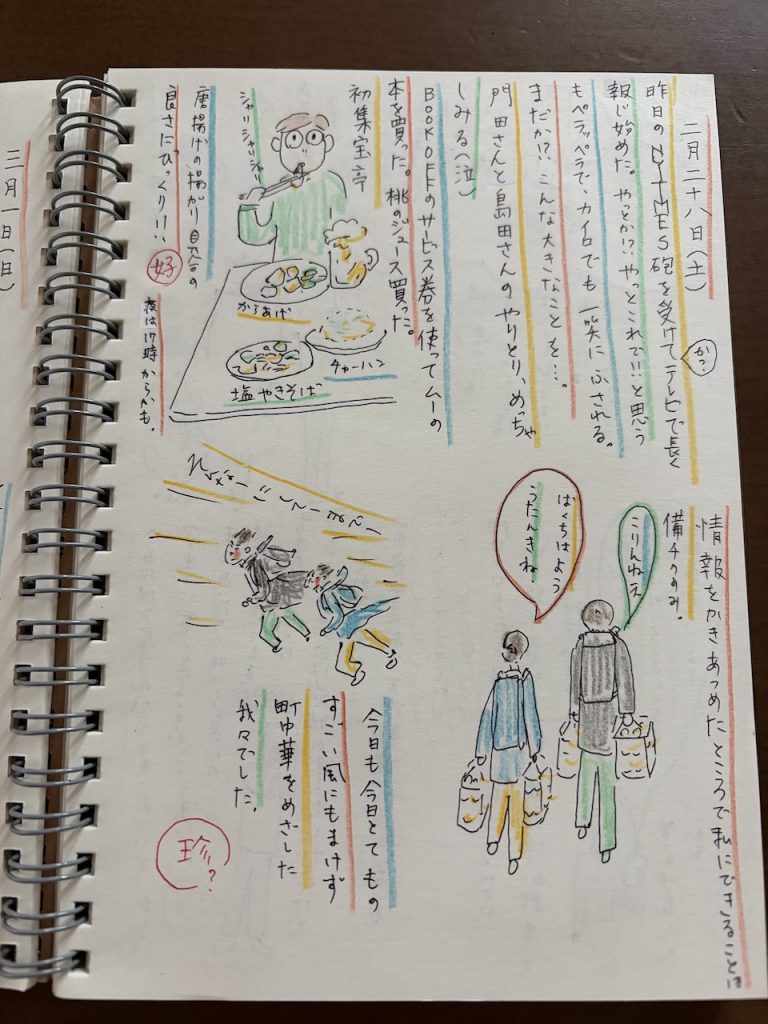 二月二十八日(土)
昨日のNYTIMES砲を受けてテレビで長く
か?
報じ始めた。やっとか!?やっとこれで!!と思う
もペラッペラで、カイロでも一笑にふされる。
まだか!?こんな大きなことを…。
門田さんと島田さんのやりとり、めっちゃ
しみる(泣)
BOOKOFFのサービス券を使ってムーの
本を買った。桃のジュース買った。
初集宝亭
シャリシャリシャリ
唐揚げの揚がり具合の
良さにびっくり!!
好
夜は17時からかも。
からあげ
チャーハン
塩やきそば
情報をかきあつめたところで私にできることは
備チクのみ。
こりんねえ
はくちはよう
うたんきね
今日も今日とてもの
すごい風にもまけず
町中華をめざした
我々でした。
珍!?
三月一日(日)